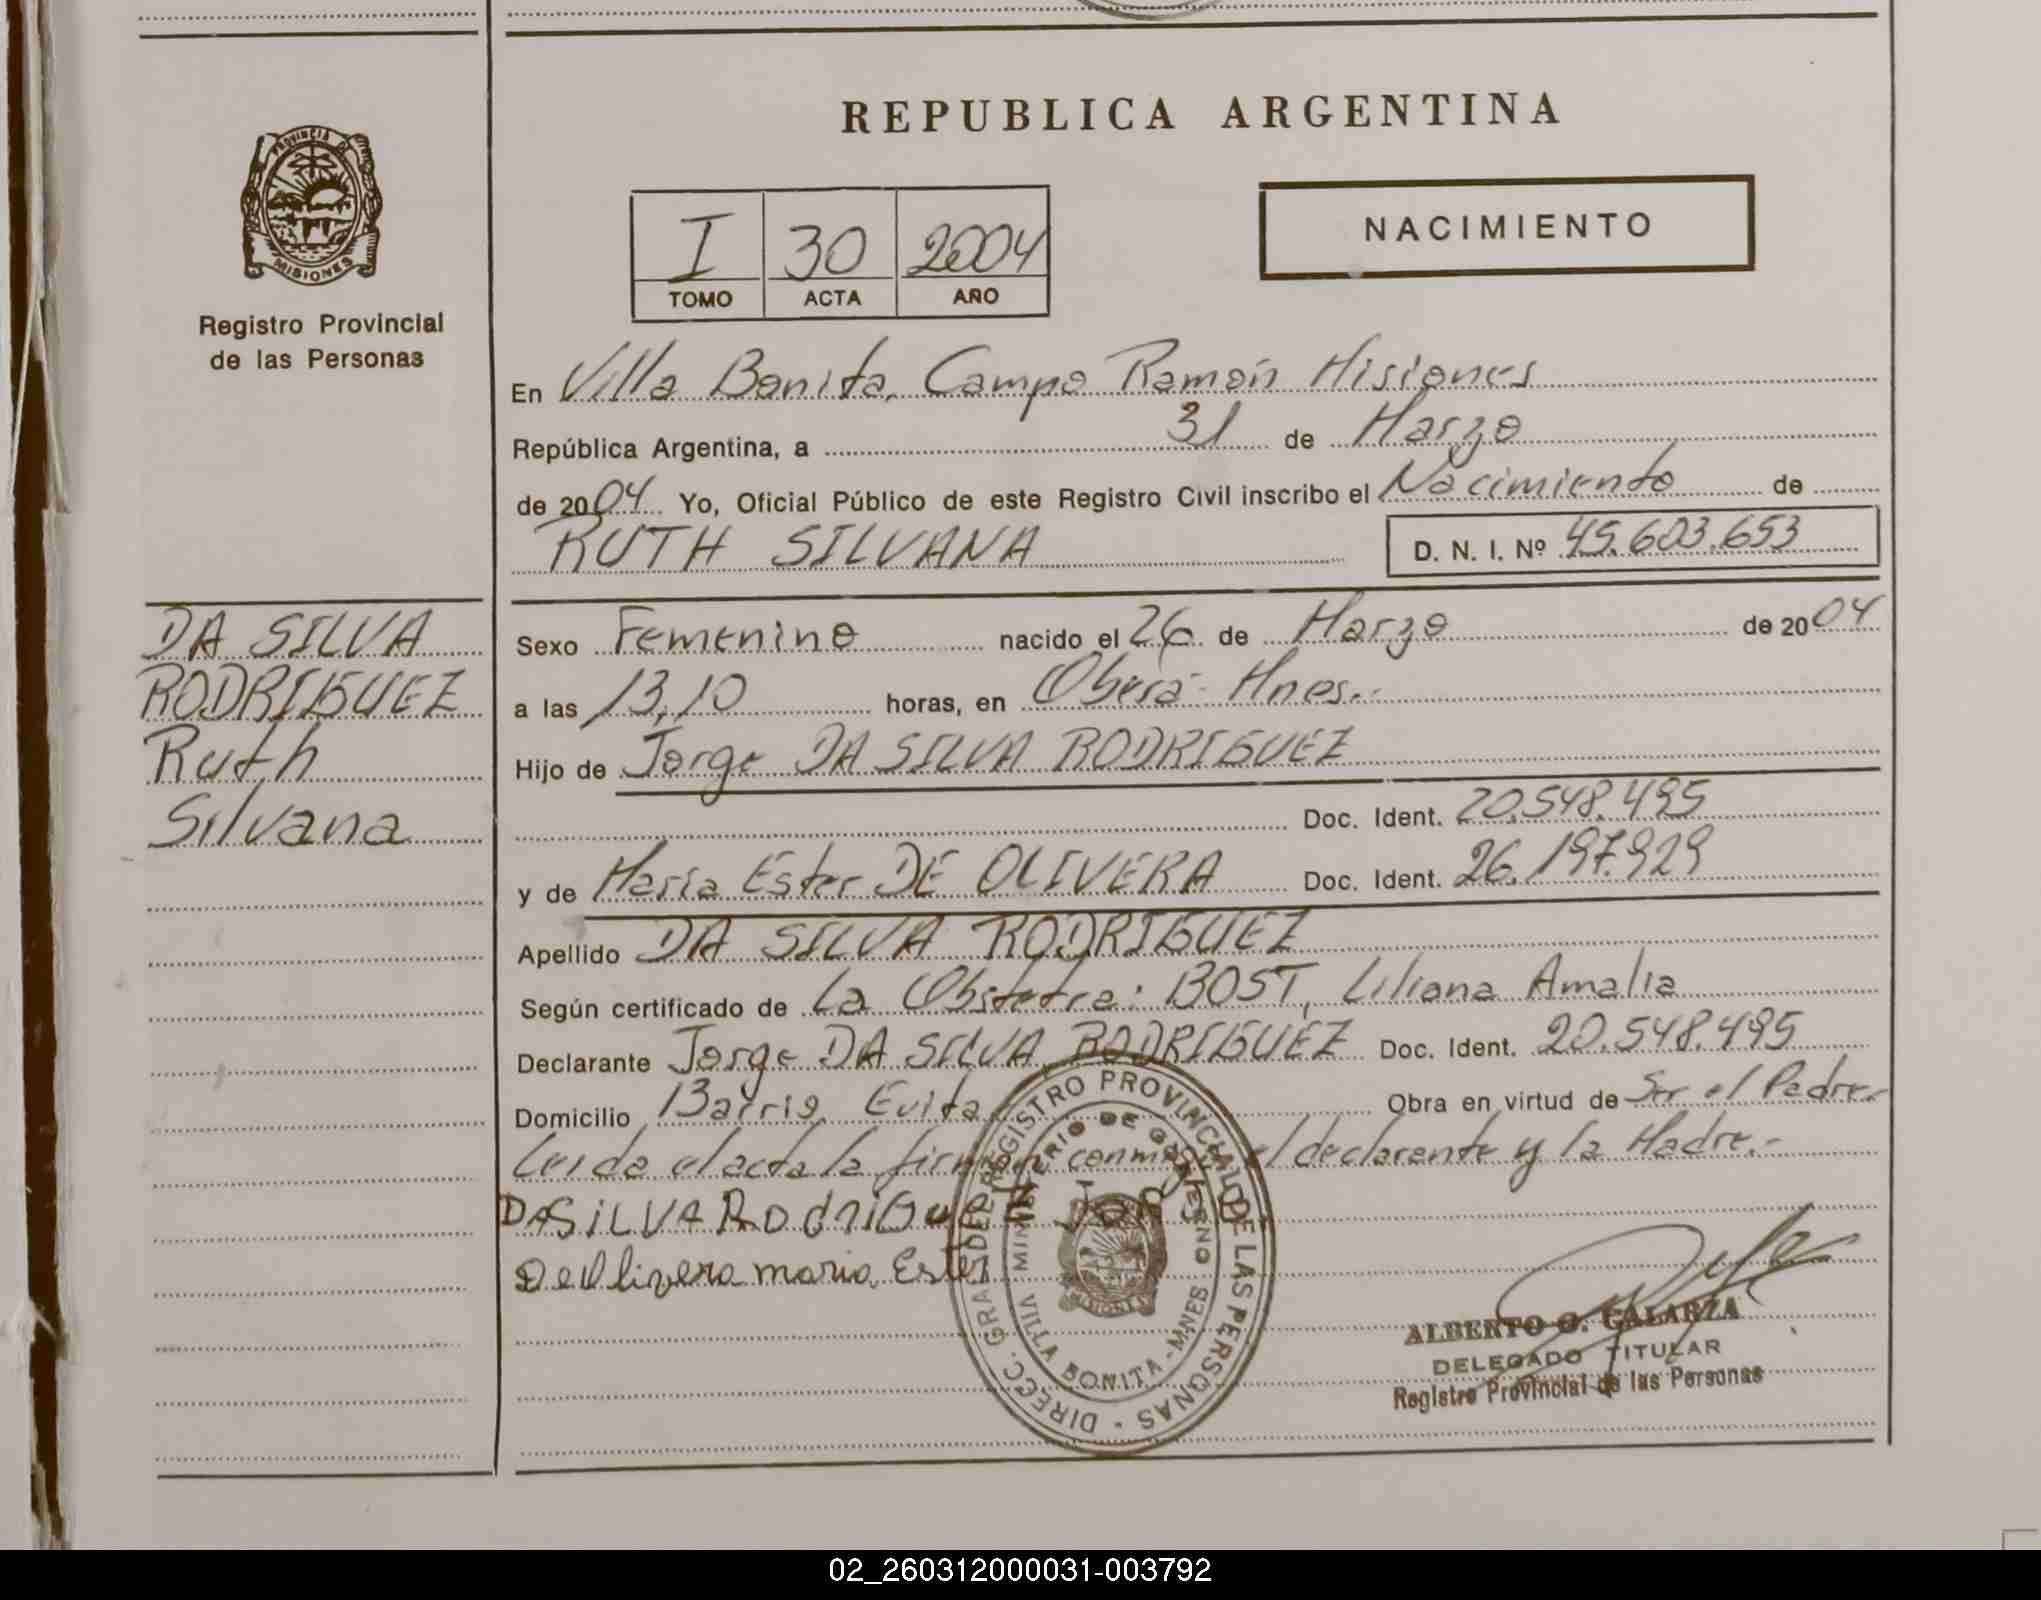 REPUBLICA ARGENTINA
PROVINCIA DE
MISIONES
Registro Provincial
de las Personas
I 30 2004
TOMO ACTA AÑO
NACIMIENTO
En Villa Bonita, Campo Ramón Misiones
República Argentina, a 31 de Marzo
de 2004 Yo, Oficial Público de este Registro Civil inscribo el Nacimiento de
RUTH SILVANA D. N. I. Nº 45.603.653
DA SILVA
RODRIGUEZ
Ruth
Silvana
Sexo Femenino nacido el 26 de Marzo de 2004
a las 13,10 horas, en Oberá - Mnes.-
Hijo de Jorge DA SILVA RODRIGUEZ
Doc. Ident. 20.548.495
y de María Ester DE OLIVERA Doc. Ident. 26.197.929
Apellido DA SILVA RODRIGUEZ
Según certificado de La Obstetra: BOST, Liliana Amalia
Declarante Jorge DA SILVA RODRIGUEZ Doc. Ident. 20.548.495
Domicilio Barrio Evita Obra en virtud de Ser el Padre.
Leida el acta la firman conmigo el declarante y la Madre.-
DASiLVA RodriGuez Jorge
De Olivera maria Ester
DIRECC. GRAL. DEL REGISTRO PROVINCIAL DE LAS PERSONAS
MINISTERIO DE GOBIERNO
VILLA BONITA - MNES
MISIONES
ALBERTO O. GALARZA
DELEGADO TITULAR
Registro Provincial de las Personas
02_260312000031-003792